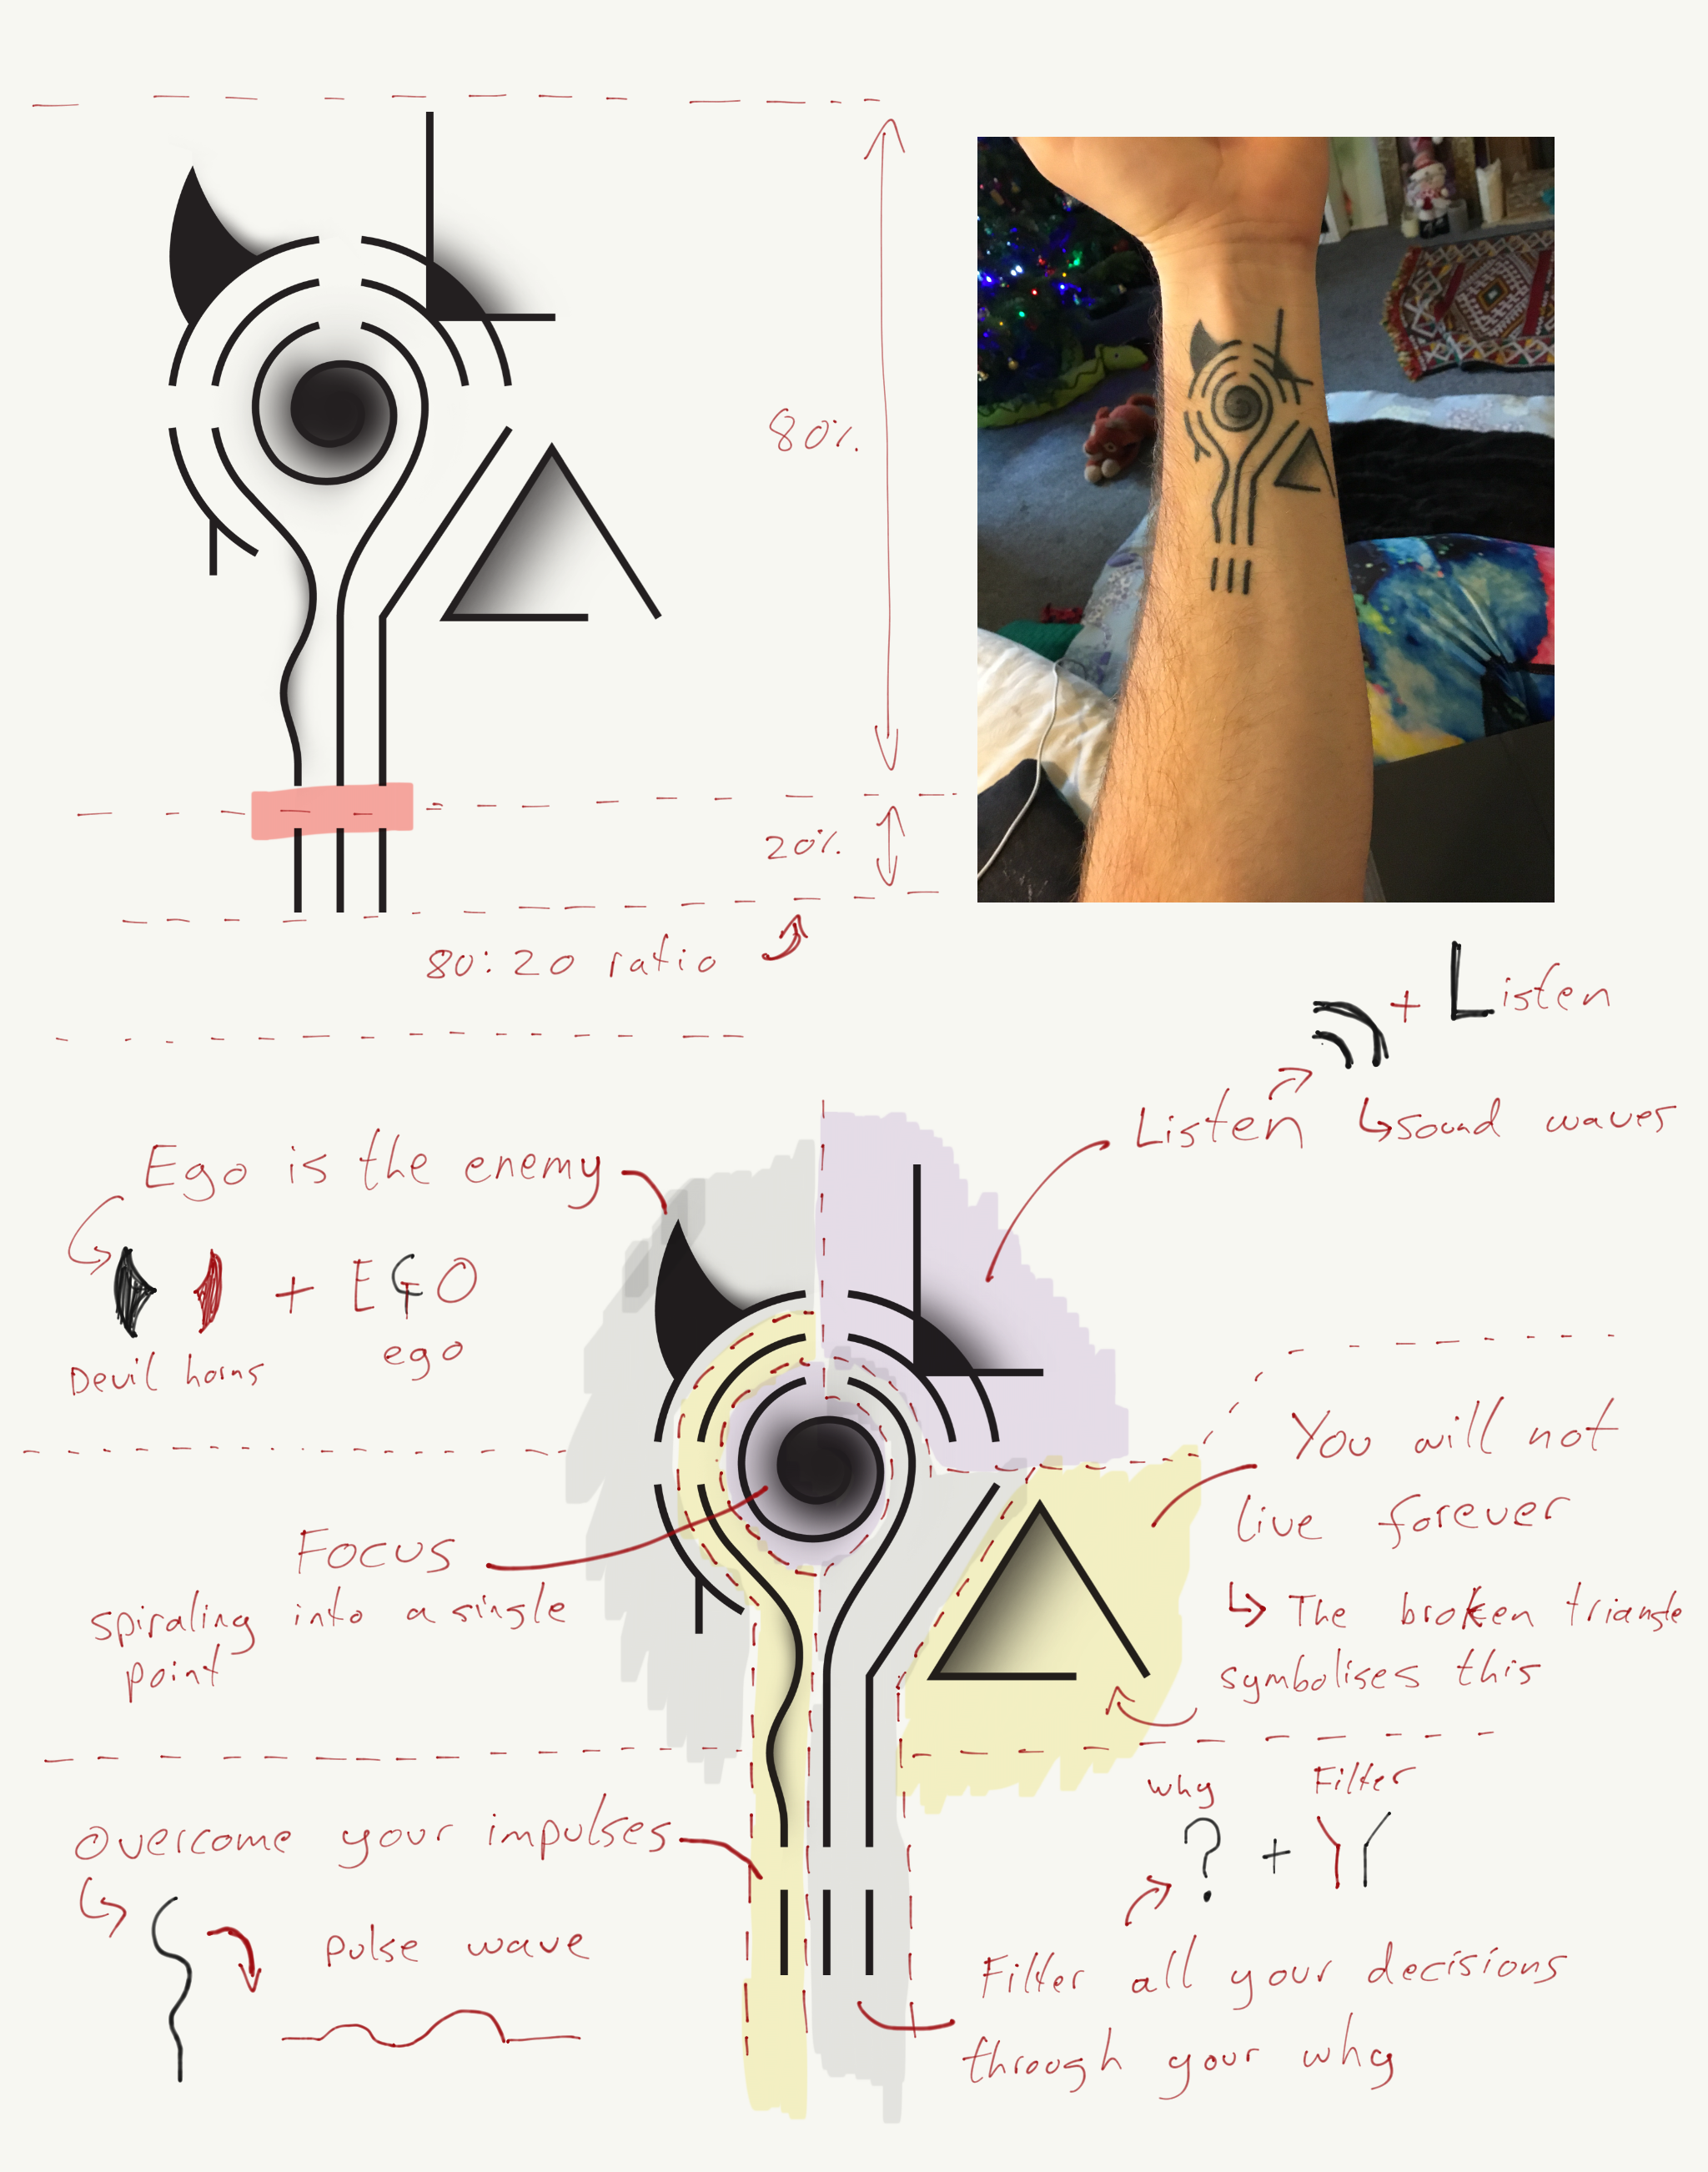 80%.
20%.
80:20 ratio
+ Listen
Listen ↳ sound waves
Ego is the enemy
+ EGO
ego
Devil horns
You will not
live forever
↳ The broken triangle
symbolises this
Focus
spiraling into a single
point
why Filter
? + YY
Overcome your impulses
pulse wave
Filter all your decisions
through your why